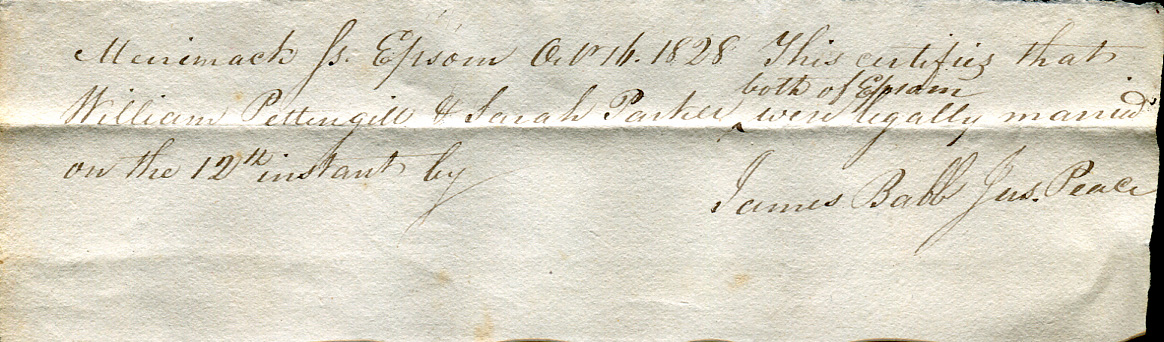 Merrimack Ss. Epsom Oct 16. 1828 This certifies that
both of Epsom
William Pettengill & Sarah Parker ‸ were legally married
on the 12th instant by
James Babb Jus. Peace